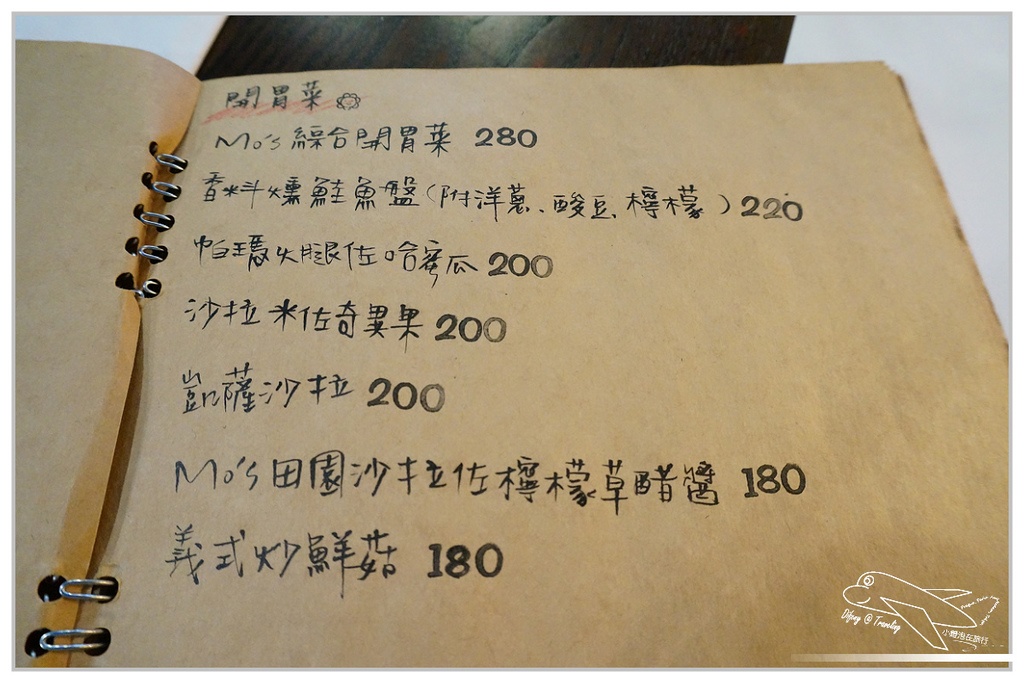 開胃菜
Mo's 綜合開胃菜 280
香料燻鮭魚盤(附洋蔥、酸豆、檸檬) 220
帕瑪火腿佐哈蜜瓜 200
沙拉米佐奇異果 200
凱薩沙拉 200
Mo's 田園沙拉佐檸檬草醋醬 180
義式炒鮮菇 180
小體泡在旅行